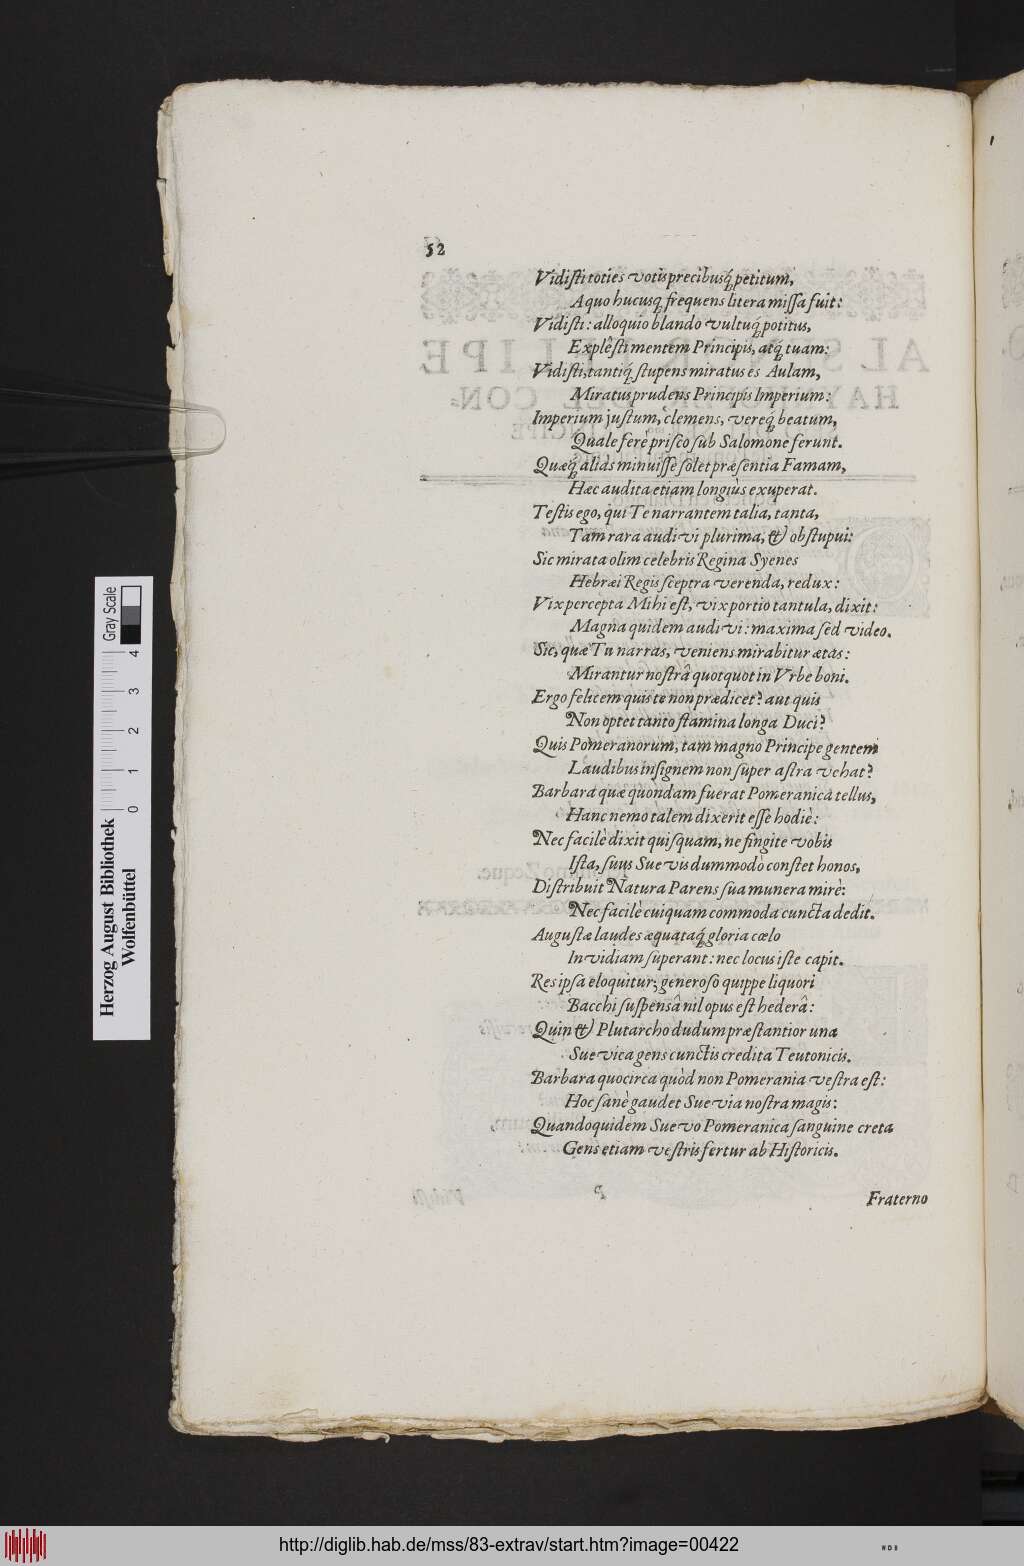 52
Vidisti toties votis precibusq́; petitum,
A quo hucusq; frequens litera missa fuit:
Vidisti: alloquio blando vultuq́; potitus,
Explêsti mentem Principis, atq; tuam:
Vidisti, tantiq́; stupens miratus es Aulam,
Miratus prudens Principis Imperium:
Imperium justum, clemens, vereq́; beatum,
Quale ferè prisco sub Salomone ferunt.
Quæq́; alias minuisse solet præsentia Famam,
Hæc audita etiam longiùs exuperat.
Testis ego, qui Te narrantem talia, tanta,
Tam rara audivi plurima, & obstupui:
Sic mirata olim celebris Regina Syenes
Hebræi Regis sceptra verenda, redux:
Vix percepta Mihi est, vix portio tantula, dixit:
Magna quidem audivi: maxima sed video.
Sic, quæ Tu narras, veniens mirabitur ætas:
Mirantur nostrâ quotquot in Vrbe boni.
Ergo felicem quis te non prædicet? aut quis
Non optet tanto stamina longa Duci?
Quis Pomeranorum, tam magno Principe gentem
Laudibus insignem non super astra vehat?
Barbara quæ quondam fuerat Pomeranica tellus,
Hanc nemo talem dixerit esse hodiè:
Nec facilè dixit quisquam, ne fingite vobis
Ista, suus Suevis dummodò constet honos,
Distribuit Natura Parens sua munera mirè:
Nec facilè cuiquam commoda cuncta dedit.
Augustæ laudes æquataq́; gloria cœlo
Invidiam superant: nec locus iste capit.
Res ipsa eloquitur; generoso quippe liquori
Bacchi suspensâ nil opus est hederâ:
Quin & Plutarcho dudum præstantior una
Suevica gens cunctis credita Teutonicis.
Barbara quocirca quòd non Pomerania vestra est:
Hoc sanè gaudet Suevia nostra magis:
Quandoquidem Suevo Pomeranica sanguine creta
Gens etiam vestris fertur ab Historicis.
Fraterno
Herzog August Bibliothek
Wolfenbüttel
0 1 2 3 4
Gray Scale
http://diglib.hab.de/mss/83-extrav/start.htm?image=00422